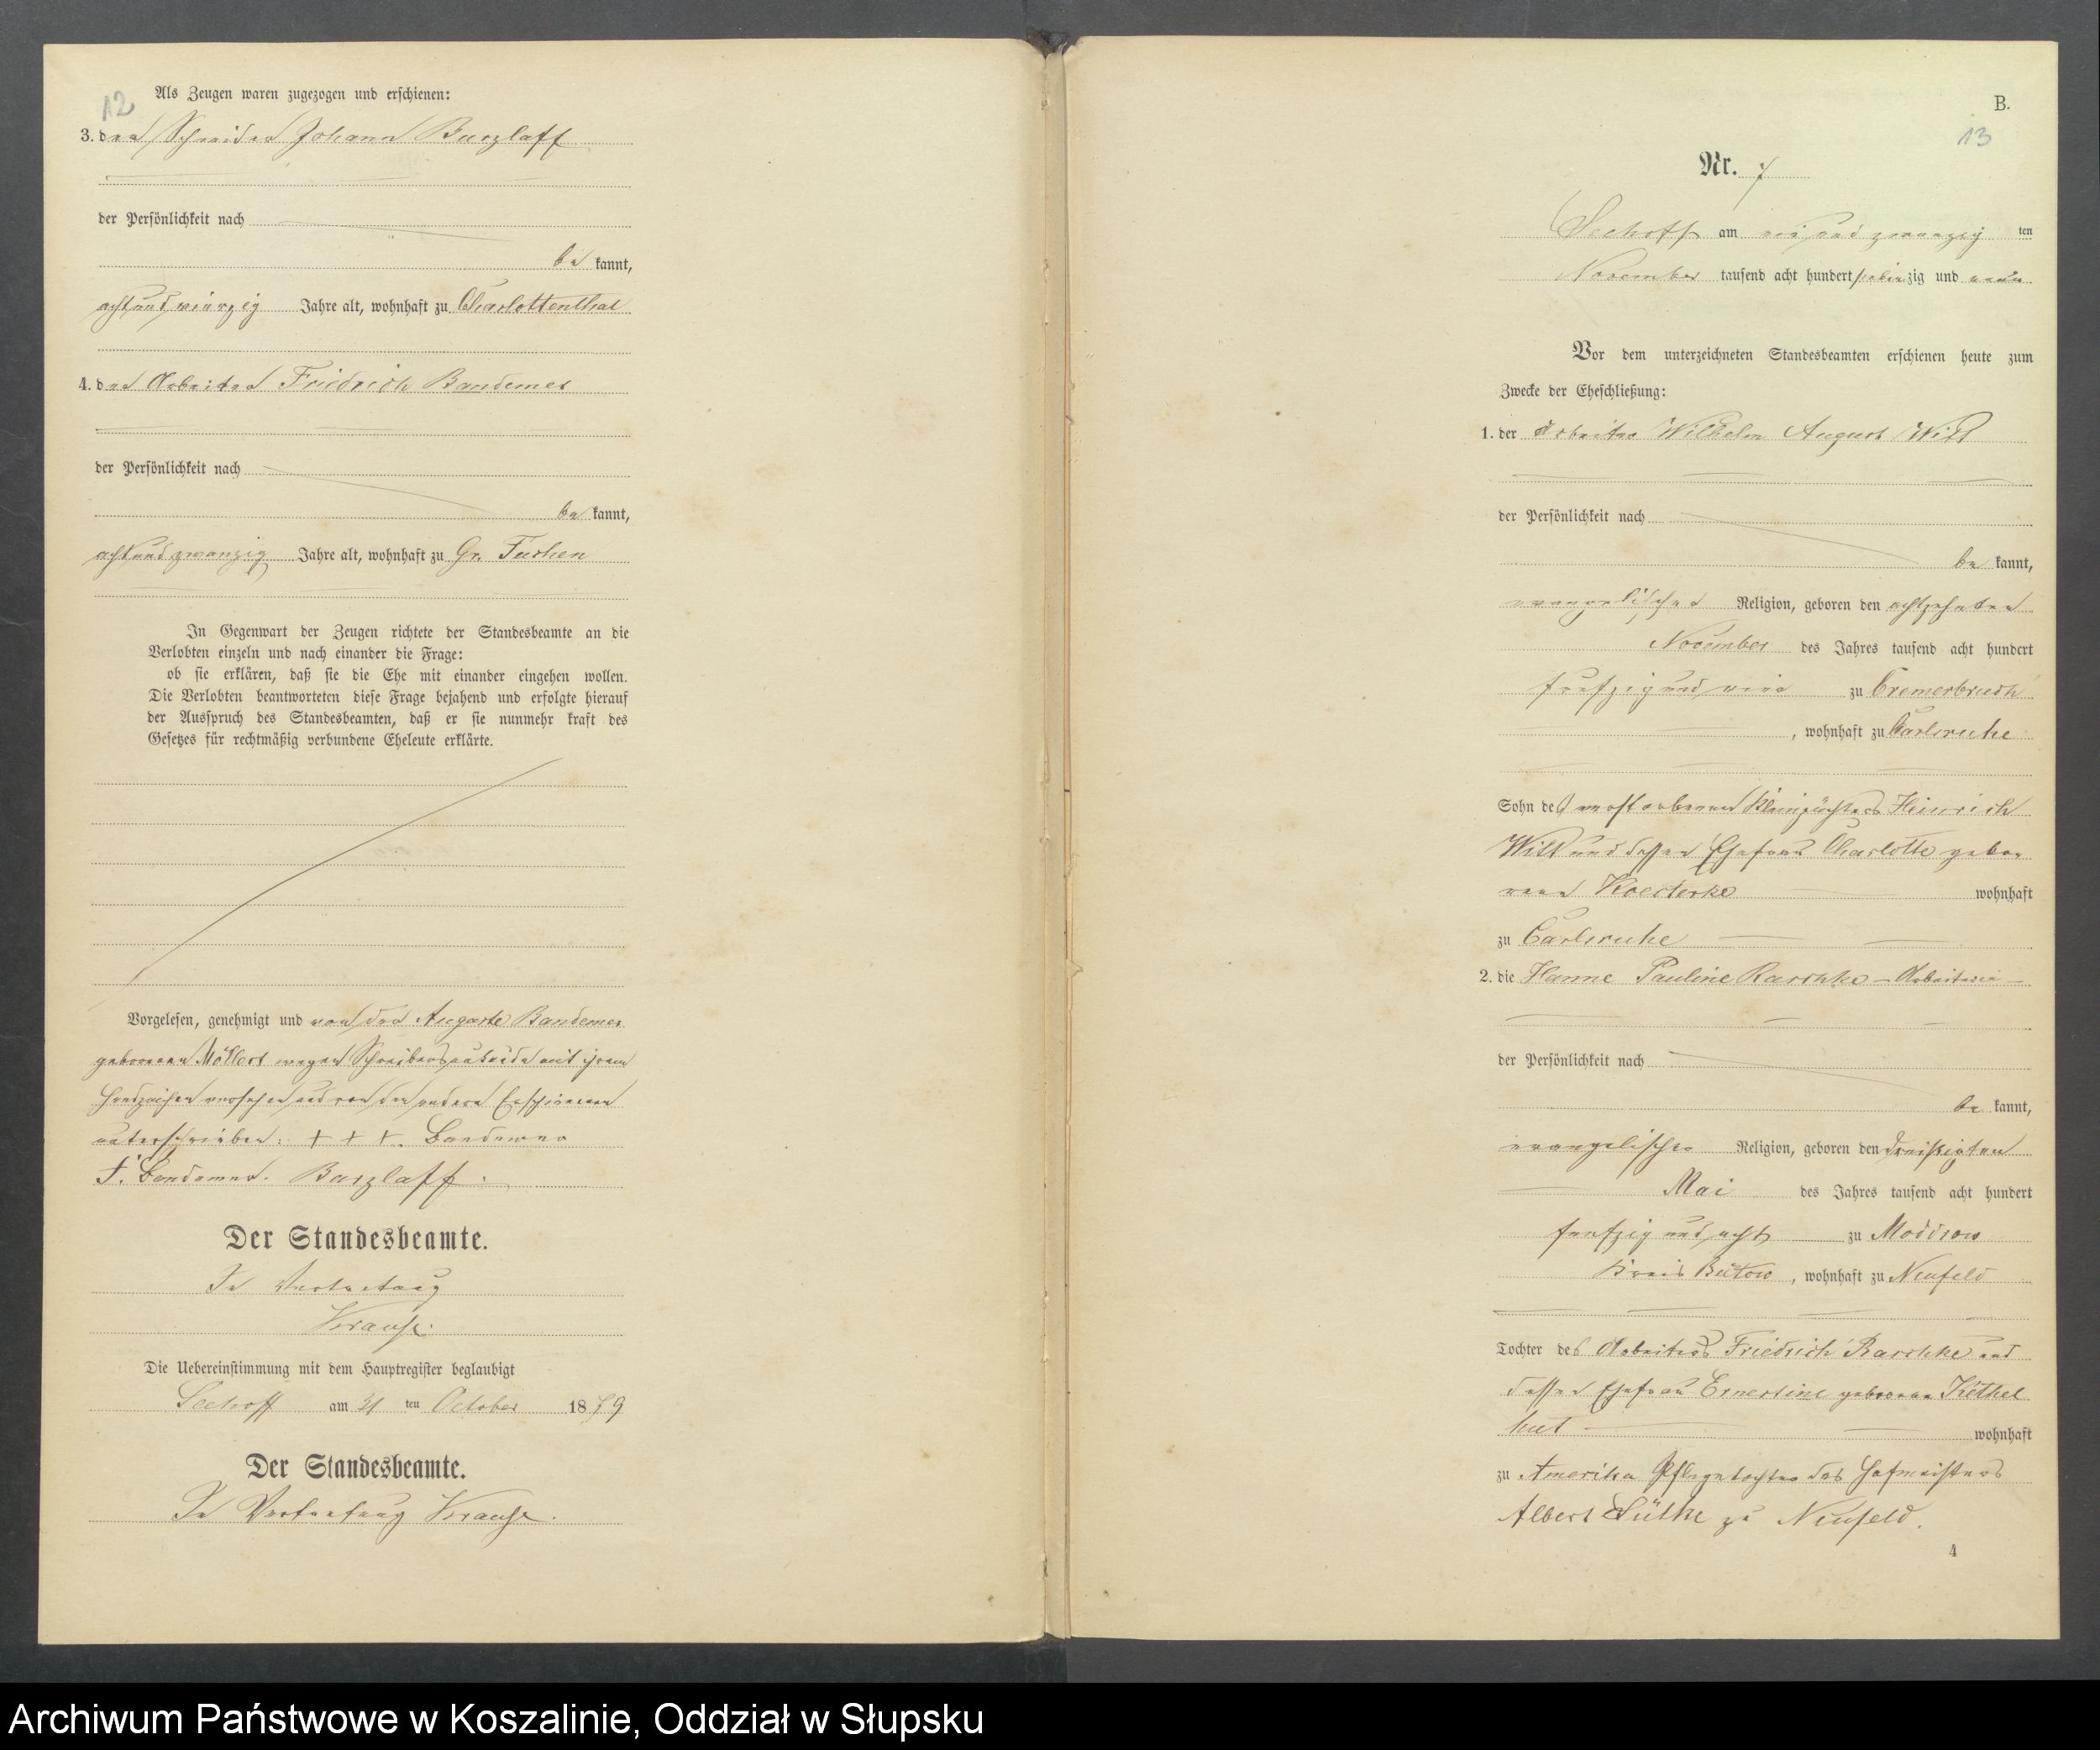 12
Als Zeugen waren zugezogen und erschienen:
3. der Schneider Johann Burzlaff
der Persönlichkeit nach
be kannt,
achtundvierzig Jahre alt, wohnhaft zu Charlottenthal
4. der Arbeiter Friedrich Bandemer
der Persönlichkeit nach
be kannt,
achtundzwanzig Jahre alt, wohnhaft zu Gr. Tuchen
In Gegenwart der Zeugen richtete der Standesbeamte an die
Verlobten einzeln und nach einander die Frage:
ob sie erklären, daß sie die Ehe mit einander eingehen wollen.
Die Verlobten beantworteten diese Frage bejahend und erfolgte hierauf
der Ausspruch des Standesbeamten, daß er sie nunmehr kraft des
Gesetzes für rechtmäßig verbundene Eheleute erklärte.
Vorgelesen, genehmigt und von der Auguste Bandemer
geborenen Möllert wegen Schreibensunkunde mit ihrem
Handzeichen versehen und von den andern Erschienenen
unterschrieben: + + +. Bandemer
F. Bandemer. Burzlaff.
Der Standesbeamte.
In Vertretung
Krause.
Die Uebereinstimmung mit dem Hauptregister beglaubigt
Seehoff am 31 ten October 1879
Der Standesbeamte.
In Vertretung Krause.
B.
13
Nr. 7
Seehoff am ein und zwanzig ten
November tausend acht hundert siebenzig und neun
Vor dem unterzeichneten Standesbeamten erschienen heute zum
Zwecke der Eheschließung:
1. der Arbeiter Wilhelm August Will
der Persönlichkeit nach
be kannt,
evangelischer Religion, geboren den achtzehnten
November des Jahres tausend acht hundert
funfzig und vier zu Cremerbruch
, wohnhaft zu Carlsruhe
Sohn des verstorbenen Kleinpächters Heinrich
Will und dessen Ehefrau Charlotte gebor
enen Koederke wohnhaft
zu Carlsruhe
2. die Hanne Pauline Raschke – Arbeiterin –
der Persönlichkeit nach
be kannt,
evangelischer Religion, geboren den dreißigten
Mai des Jahres tausend acht hundert
funfzig und acht zu Moddrow
Kreis Bütow , wohnhaft zu Neufeld
Tochter des Arbeiters Friedrich Raschke und
dessen Ehefrau Ernestine geborenen Kethel
hut wohnhaft
zu Amerika Pflegetochter des Hofmeisters
Albert Lüthe zu Neufeld.
4
Archiwum Państwowe w Koszalinie, Oddział w Słupsku